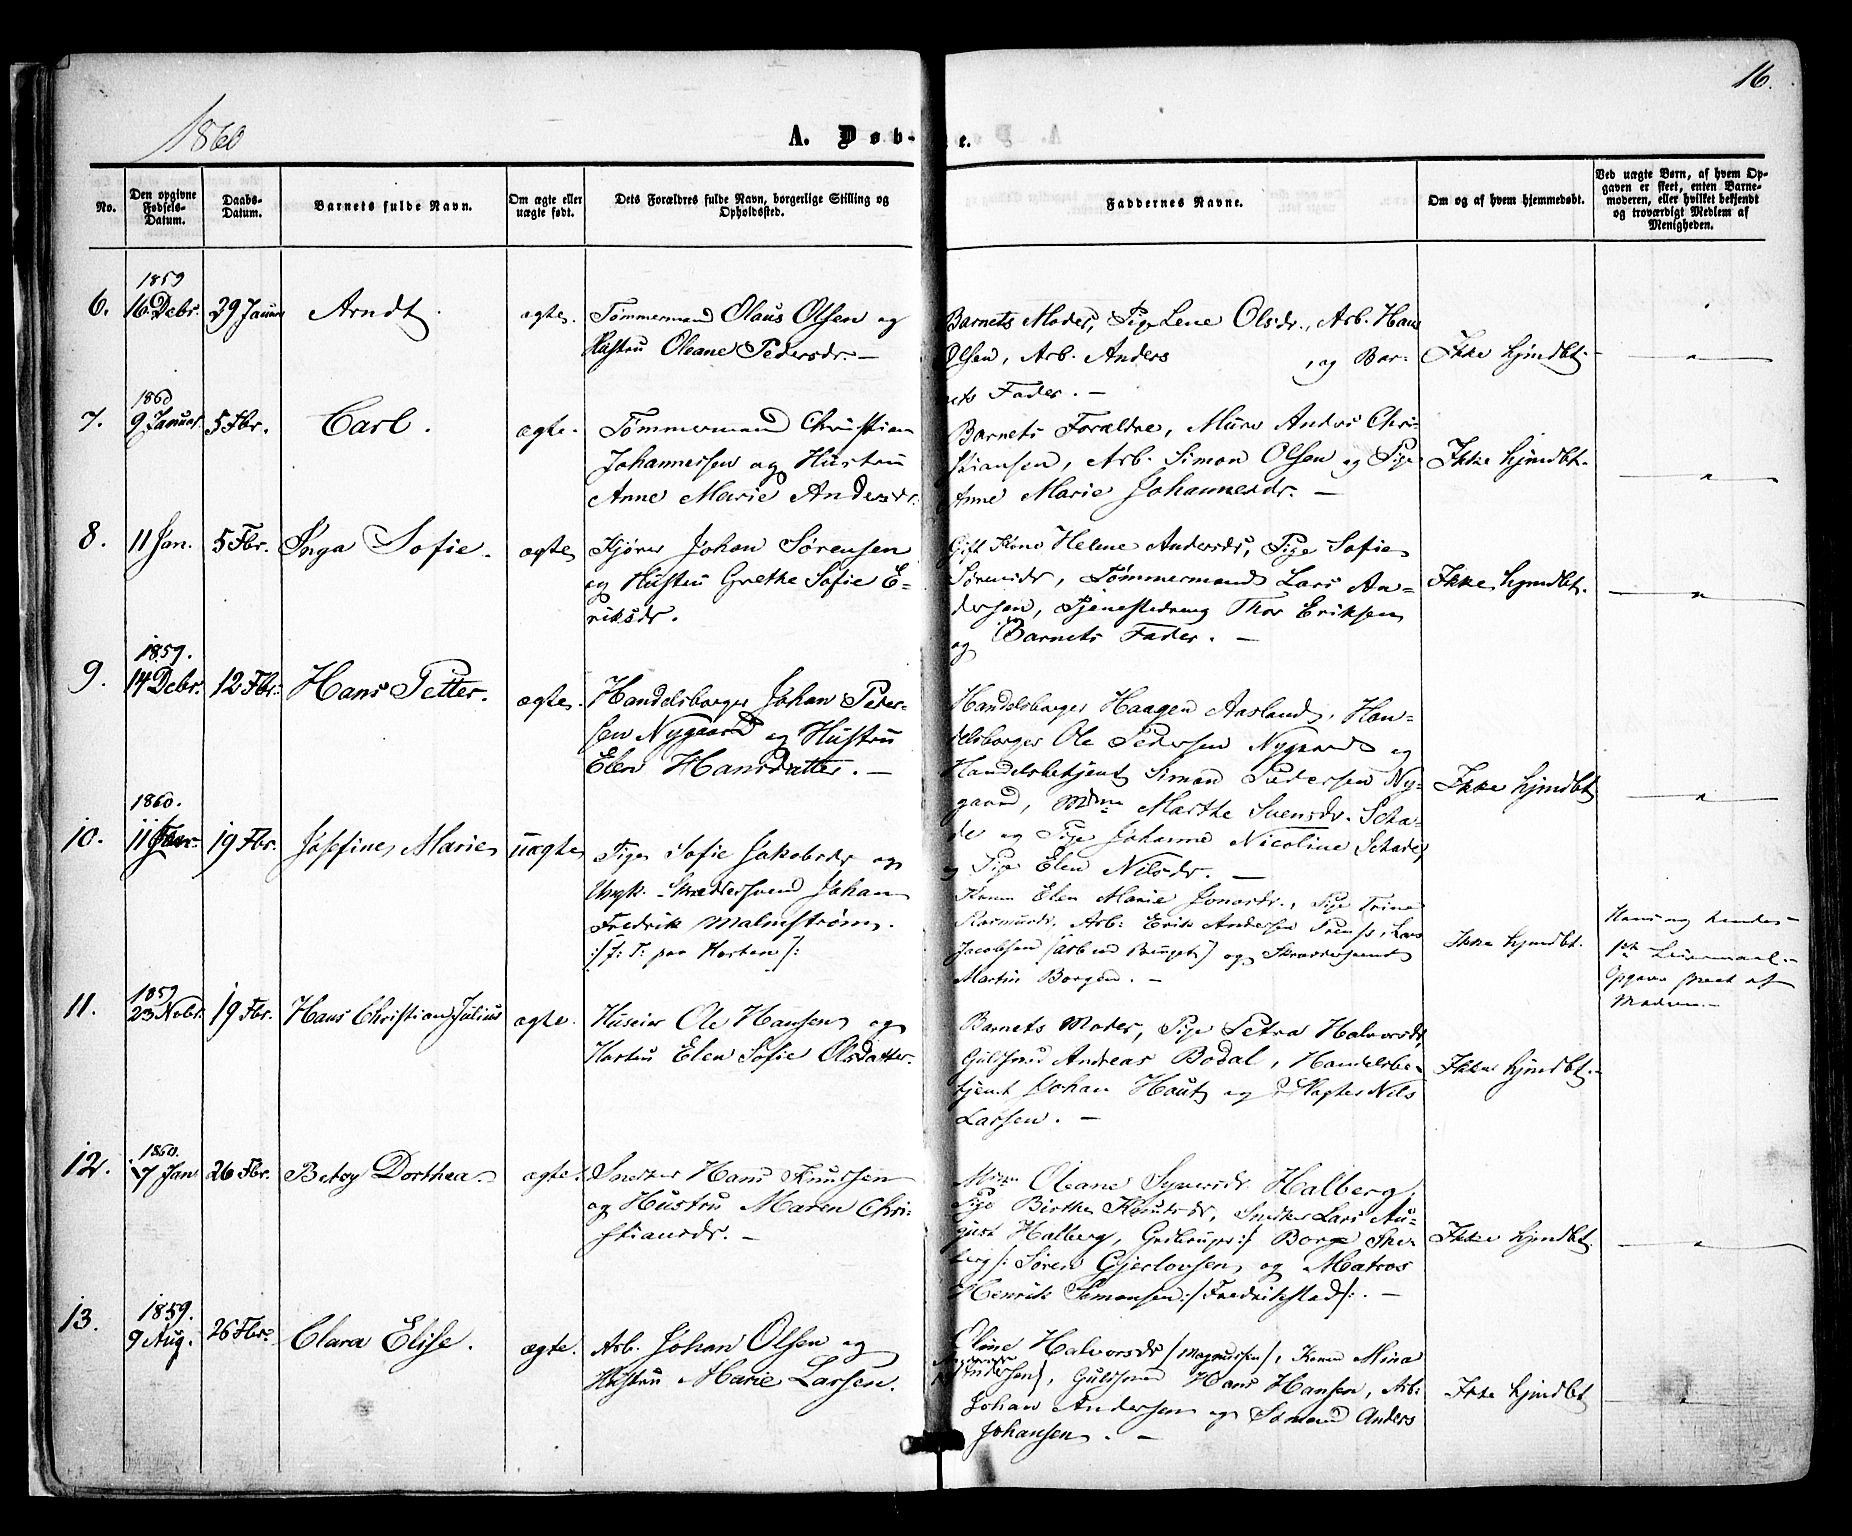 16.
1860
A. Døb-te.
No.
Den opgivne Fødsels-Datum.
Daabs-Datum.
Barnets fulde Navn.
Om ægte eller uægte født.
Dets Forældres fulde Navn, borgerlige Stilling og Opholdssted.
Faddernes Navne.
Om og af hvem hjemmedøbt.
Ved uægte Børn, af hvem Opgaven er skeet, enten Barnemoderen, eller hvilket bekjendt og troværdigt Medlem af Menigheden.
1859
6. 16 Debr. 29 Januar Arndt. ægte.
Tømmermand Olaus Olsen og
Hustru Oleane Pedersdr. —
Barnets Moder, Pige Lene Olsdr., Arb. Hans
Olsen, Arb. Anders , og Bar-
nets Fader. —
Ikke hjmdbt.
"
1860
7. 9 Januar. 5 Fbr. Carl. ægte.
Tømmermand Christian
Johannessen og Hustru
Anne Marie Andersdr.
Barnets Forældre, Murer Anders Chri-
stiansen, Arb. Simon Olsen og Pige
Anne Marie Johannesdr. —
Ikke hjmdbt.
"
8. 11 Jan. 5 Fbr. Inga Sofie. ægte
Kjører Johan Sørensen
og Hustru Grethe Sofie E-
riksdr.
Gift Kone Helene Andersdr, Pige Sofie
Sørensdr, Tømmermand Lars An-
dersen, Tjenestedreng Thor Eriksen
og Barnets Fader. —
Ikke hjmdbt.
"
1859.
9. 14 Debr. 12 Fbr. Hans Petter. ægte.
Handelsborger Johan Peder-
sen Nygaard og Hustru
Elen Hansdatter. —
Handelsborger Haagen Aasland, Han-
delsborger Ole Pedersen Nygaard og
Handelsbetjent Simon Pedersen Ny-
gaard, Mdme Marthe Svensdr. Scha-
de og Pige Johanne Nicoline Schade,
og Pige Elen Nilsdr. —
Ikke hjmdbt
"
1860.
10. 11 Jan. 19 Fbr. Josefine Marie uægte
Pige Sofie Jakobsdr og
Ungk. Skræddersvend Johan
Fredrik Malmstrøm.
:/f: T: paa Horten/:
Kone Elen Marie Jonasdr., Pige Trine
Rasmusdr, Arb: Erik Andersen , Lars
Jacobsen og Skræddersvend
Martin Borgen. —
Ikke hjmdbt.
Hans og hendes
1ste Leiermaal.
Opgave skeet af
Moderen. —
1859
11. 23 Nobr. 19 Fbr. Hans Christian Julius ægte.
Huseier Ole Hansen og
Hustru Elen Sofie Olsdatter.
Barnets Moder, Pige Petra Halvorsdr,
Guldsmed Andreas Bodal, Handelsbe-
tjent Johan Haut og Slagter Nils
Larsen. —
Ikke hjmdbt.
1860.
12. 7 Jan 26 Fbr. Betsy Dorthea. ægte.
Snedker Hans Knutsen
og Hustru Maren Chri-
stiansdr. —
Mdme Oleane Syversdr. Halberg,
Pige Birthe Knutsdr, Snedker Lars Au-
gust Halberg, /Borge She-
berg/: Søren Gjerlovsen og Matros
Henrik Simonsen :/Fredrikstad/:. —
Ikke hjmdbt.
"
1859.
13. 9 Aug. 26 Fbr. Clara Elise. ægte.
Arb. Johan Olsen og
Hustru Marie Larsen.
Eline Halvorsdr /Magnussen/, Kone Mina
Andersen/, Guldsmed Hans Hansen, Arb:
Johan Andersen og Sømand Anders
Johansen. —
Ikke hjmdbt
"